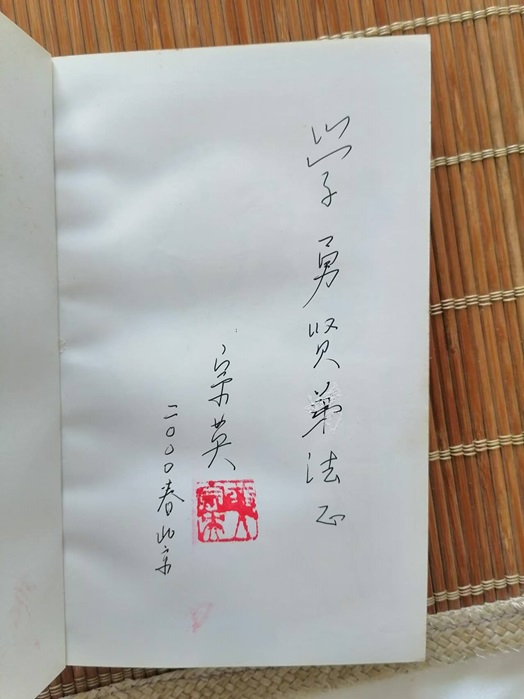 学勇贤弟法正
宗英
二〇〇〇春北京